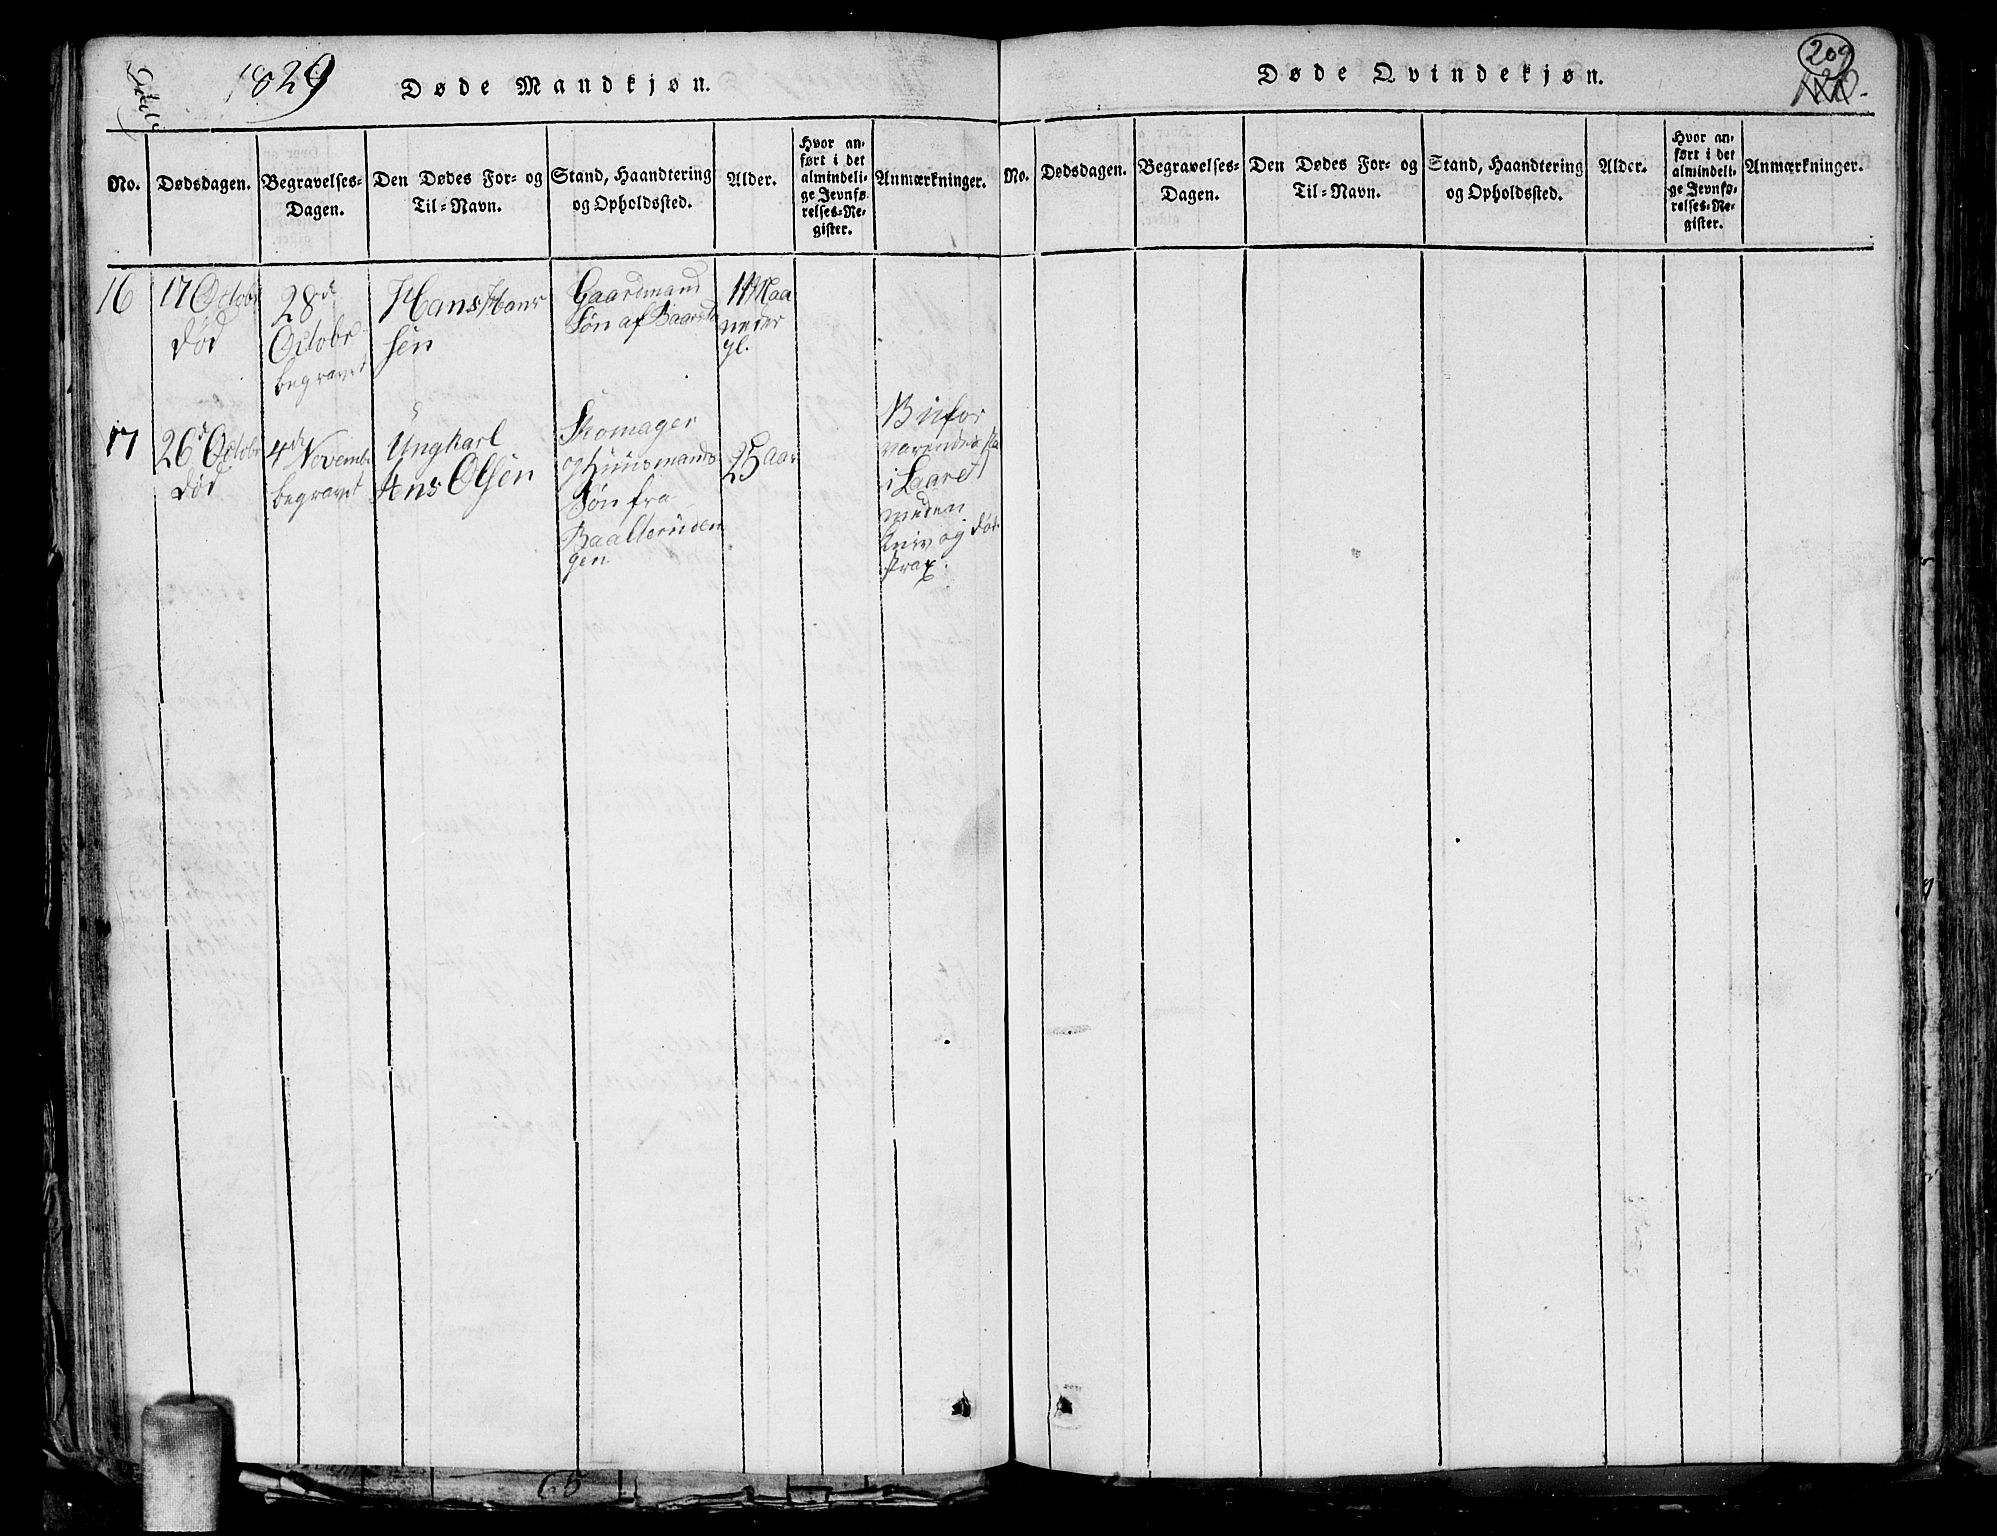 1829
Døde Mandkjøn.
No.
Dødsdagen.
Begravelses-
Dagen.
Den Dødes For- og
Til-Navn.
Stand, Haandtering
og Opholdssted.
Alder.
Hvor an-
ført i det
almindeli-
ge Jevnfø-
relses-Re-
gister.
Anmærkninger.
16
17 Octobr
død
28de
Octobr
begravet
Hans Hans
sen
Gaardmand
Søn af
11 Maa
neder
gl.
17
26d Octobr
død
4de Novembr
begravet
Ungkarl
Jens Olsen
Skomager
og Huusmands
Søn fra
gen
25 aar
i Laaret
meden
Kniv og døde
strax.
Døde Qvindekjøn.
209
No.
Dødsdagen.
Begravelses-
Dagen.
Den Dødes For- og
Til-Navn.
Stand, Haandtering
og Opholdssted.
Alder.
Hvor an-
ført i det
almindeli-
ge Jevnfø-
relses-Re-
gister.
Anmærkninger.